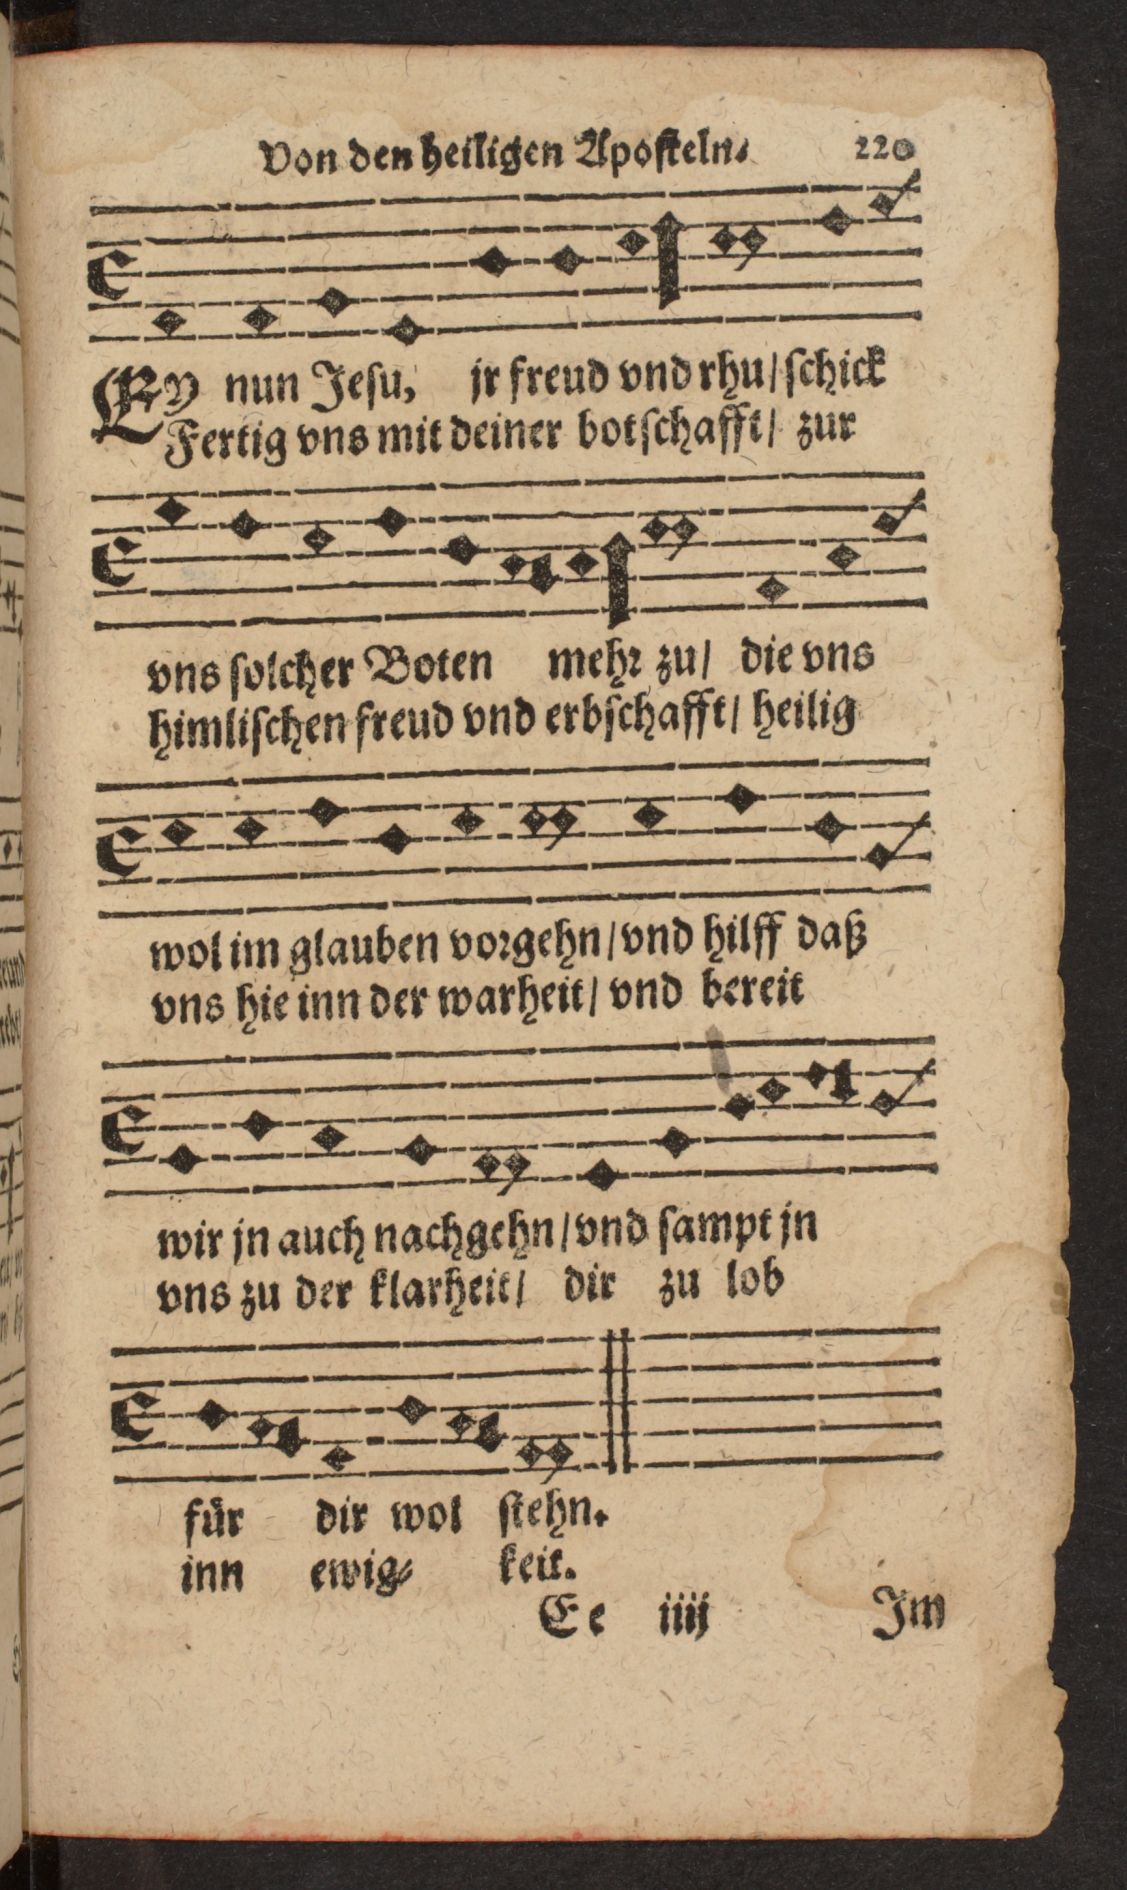 Von den heiligen Aposteln. 220
EY nun Jesu, jr freud vnd rhu/ schick
Fertig vns mit deiner botschafft/ zur
vns solcher Boten mehr zu/ die vns
himlischen freud vnd erbschafft/ heilig
wol im glauben vorgehn/ vnd hilff daß
vns hie inn der warheit/ vnd bereit
wir jn auch nachgehn/ vnd sampt jn
vns zu der klarheit/ dir zu lob
für dir wol stehn.
inn ewig⸗ keit.
Ee iiij Im